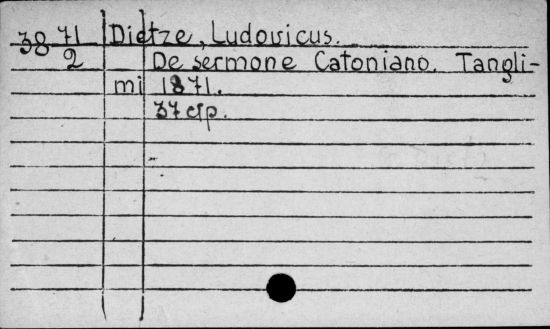 38 71 Dietze, Ludovicus.
2 De sermone Catoniano. Tangli-
mi 1871.
37 cfp.